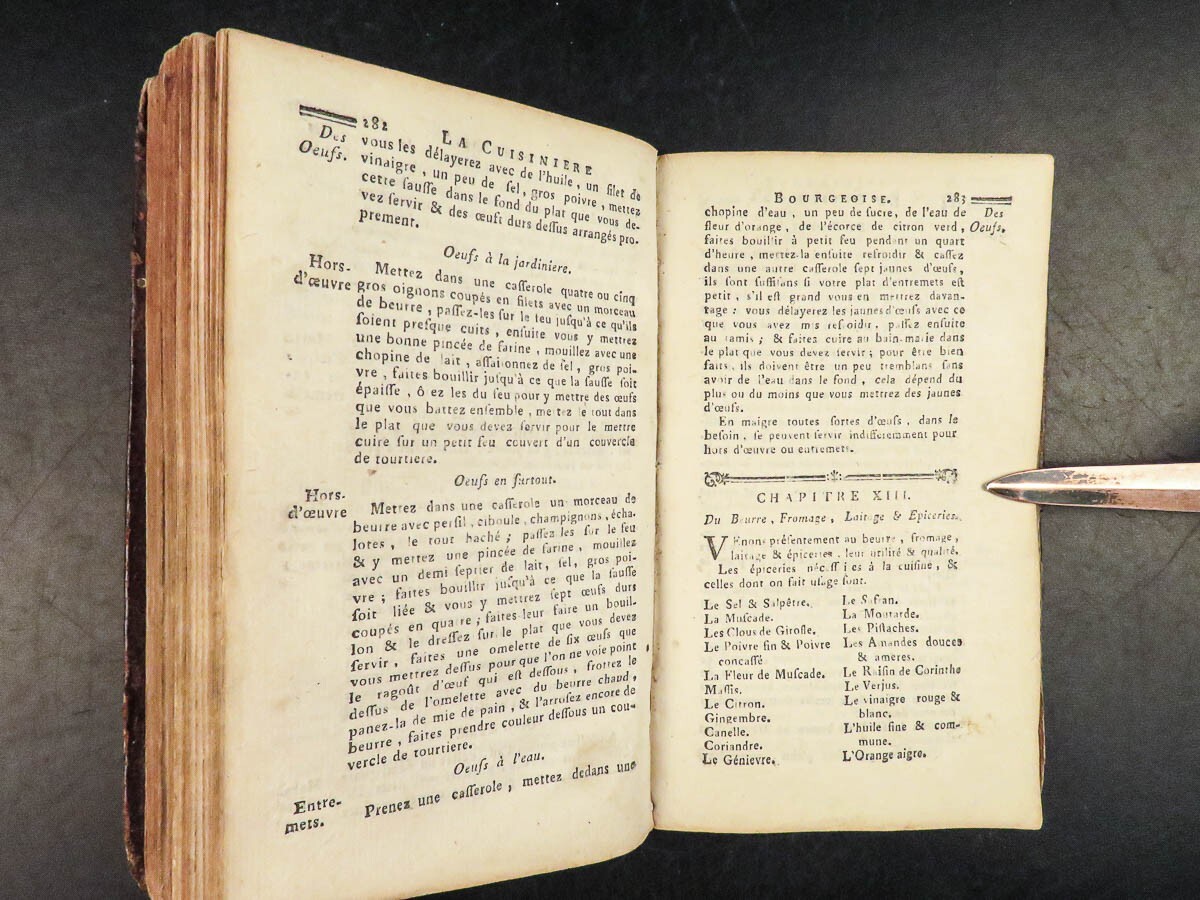 282 LA CUISINIERE
Des Oeufs.
vous les délayerez avec de l'huile, un filet de
vinaigre, un peu de ſel, gros poivre, mettez
cette ſauſſe dans le fond du plat que vous de-
vez ſervir & des œufs durs deſſus arrangés pro-
prement.
Oeufs à la jardiniere.
Hors-d'œuvre
Mettez dans une caſſerole quatre ou cinq
gros oignons coupés en filets avec un morceau
de beurre, paſſez-les ſur le feu juſqu'à ce qu'ils
ſoient preſque cuits, enſuite vous y mettrez
une bonne pincée de farine, mouillez avec une
chopine de lait, aſſaiſonnez de ſel, gros poi-
vre, faites bouillir juſqu'à ce que la ſauſſe ſoit
épaiſſe, ô ez les du feu pour y mettre des œufs
que vous battez enſemble, mettez le tout dans
le plat que vous devez ſervir pour le mettre
cuire ſur un petit feu couvert d'un couvercle
de tourtiere.
Oeufs en ſurtout.
Hors-d'œuvre
Mettez dans une caſſerole un morceau de
beurre avec perſil, ciboule, champignons, écha-
lotes, le tout haché; paſſez les ſur le feu
& y mettez une pincée de farine, mouillez
avec un demi ſeptier de lait, ſel, gros poi-
vre; faites bouillir juſqu'à ce que la ſauſſe
ſoit liée & vous y mettrez ſept œufs durs
coupés en quatre; faites-leur faire un bouil-
lon & le dreſſez ſur le plat que vous devez
ſervir, faites une omelette de ſix œufs que
vous mettrez deſſus pour que l'on ne voie point
le ragoût d'œuf qui est deſſous, frottez le
deſſus de l'omelette avec du beurre chaud,
panez-la de mie de pain, & l'arroſez encore de
beurre, faites prendre couleur deſſous un cou-
vercle de tourtiere.
Oeufs à l'eau.
Entre-mets.
Prenez une caſſerole, mettez dedans une
BOURGEOISE. 283
Des Oeufs.
chopine d'eau, un peu de ſucre, de l'eau de
fleur d'orange, de l'écorce de citron verd,
faites bouillir à petit feu pendant un quart
d'heure, mettez-la enſuite refroidir & caſſez
dans une autre caſſerole ſept jaunes d'œufs,
ils ſont ſuffiſans ſi votre plat d'entremets eſt
petit, s'il eſt grand vous en mettrez davan-
tage: vous délayerez les jaunes d'œufs avec ce
que vous avez mis refroidir, paſſez enſuite
au tamis; & faites cuire au bain-marie dans
le plat que vous devez ſervir; pour être bien
faits, ils doivent être un peu tremblans ſans
avoir de l'eau dans le fond, cela dépend du
plus ou du moins que vous mettrez des jaunes
d'œufs.
En maigre toutes ſortes d'œufs, dans le
beſoin, ſe peuvent ſervir indifféremment pour
hors d'œuvre ou entremets.
CHAPITRE XIII.
Du Beurre, Fromage, Laitage & Epiceries.
VEnons préſentement au beurre, fromage,
laitage & épiceries, leur utilité & qualité.
Les épiceries néceſſ ies à la cuiſine, &
celles dont on fait uſage ſont.
Le Sel & Salpêtre.
La Muſcade.
Les Clous de Girofle.
Le Poivre fin & Poivre
concaſſé
La Fleur de Muſcade.
Maſſis.
Le Citron.
Gingembre.
Canelle.
Coriandre.
Le Génievre.
Le Safran.
La Moutarde.
Les Piſtaches.
Les Amandes douces
& ameres.
Le Raiſin de Corinthe
Le Verjus.
Le vinaigre rouge &
blanc.
L'huile fine & com-
mune.
L'Orange aigre.